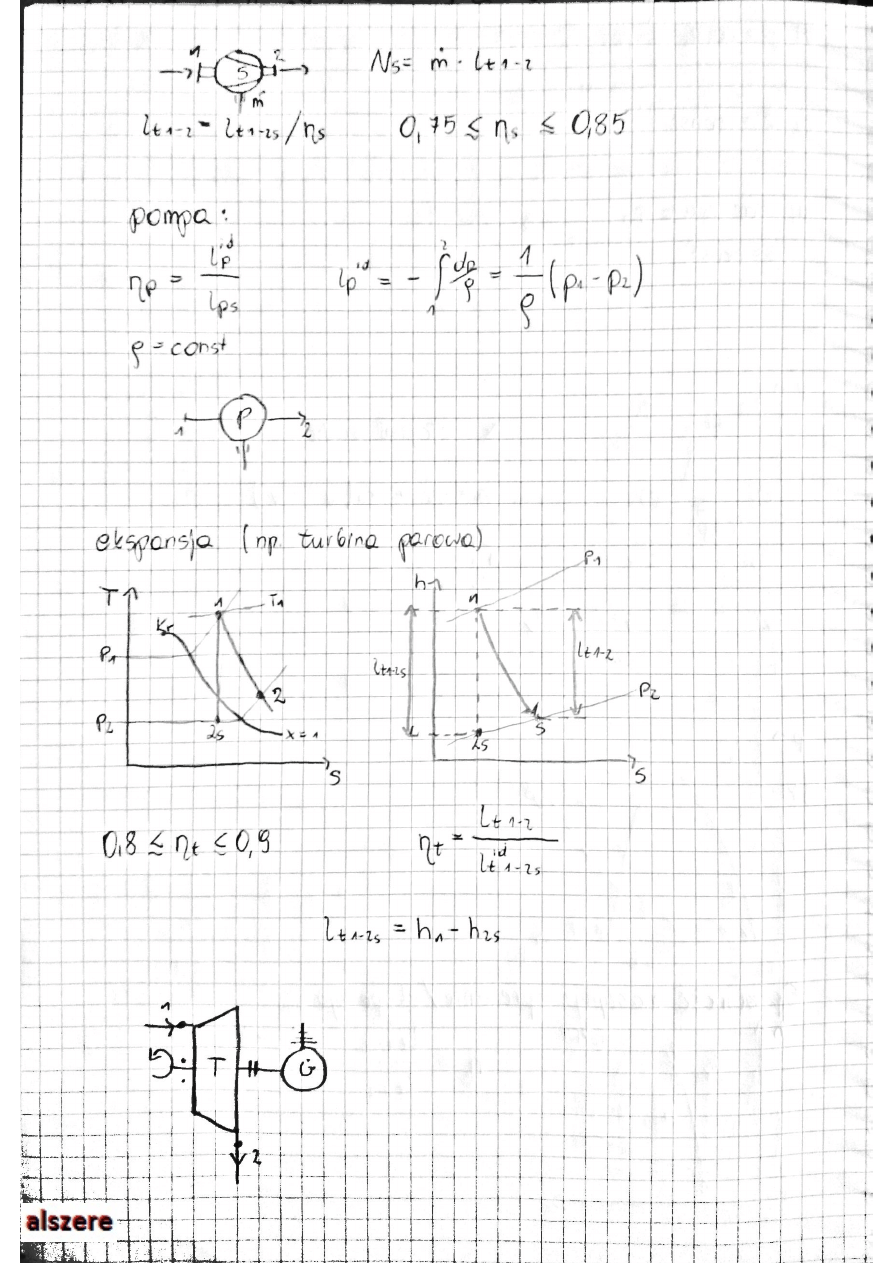 1 S 2 Ns = ṁ · lt1-2
ṁ
lt1-2 = lt1-2s/ηs 0,75 ≤ ηs ≤ 0,85
pompa:
ηp = lp^id / lps lp^id = - ∫₁² dp/ρ = 1/ρ (p1 - p2)
ρ = const
1 P 2
ekspansja (np. turbina parowa)
T 1 T1 Kr P1 P2 2 2s x=1 s
h P1 1 lt1-2s lt1-2 P2 2s s s
0,8 ≤ ηt ≤ 0,9 ηt = lt1-2 / lt^id 1-2s
lt1-2s = h1 - h2s
1
T G
2
alszere